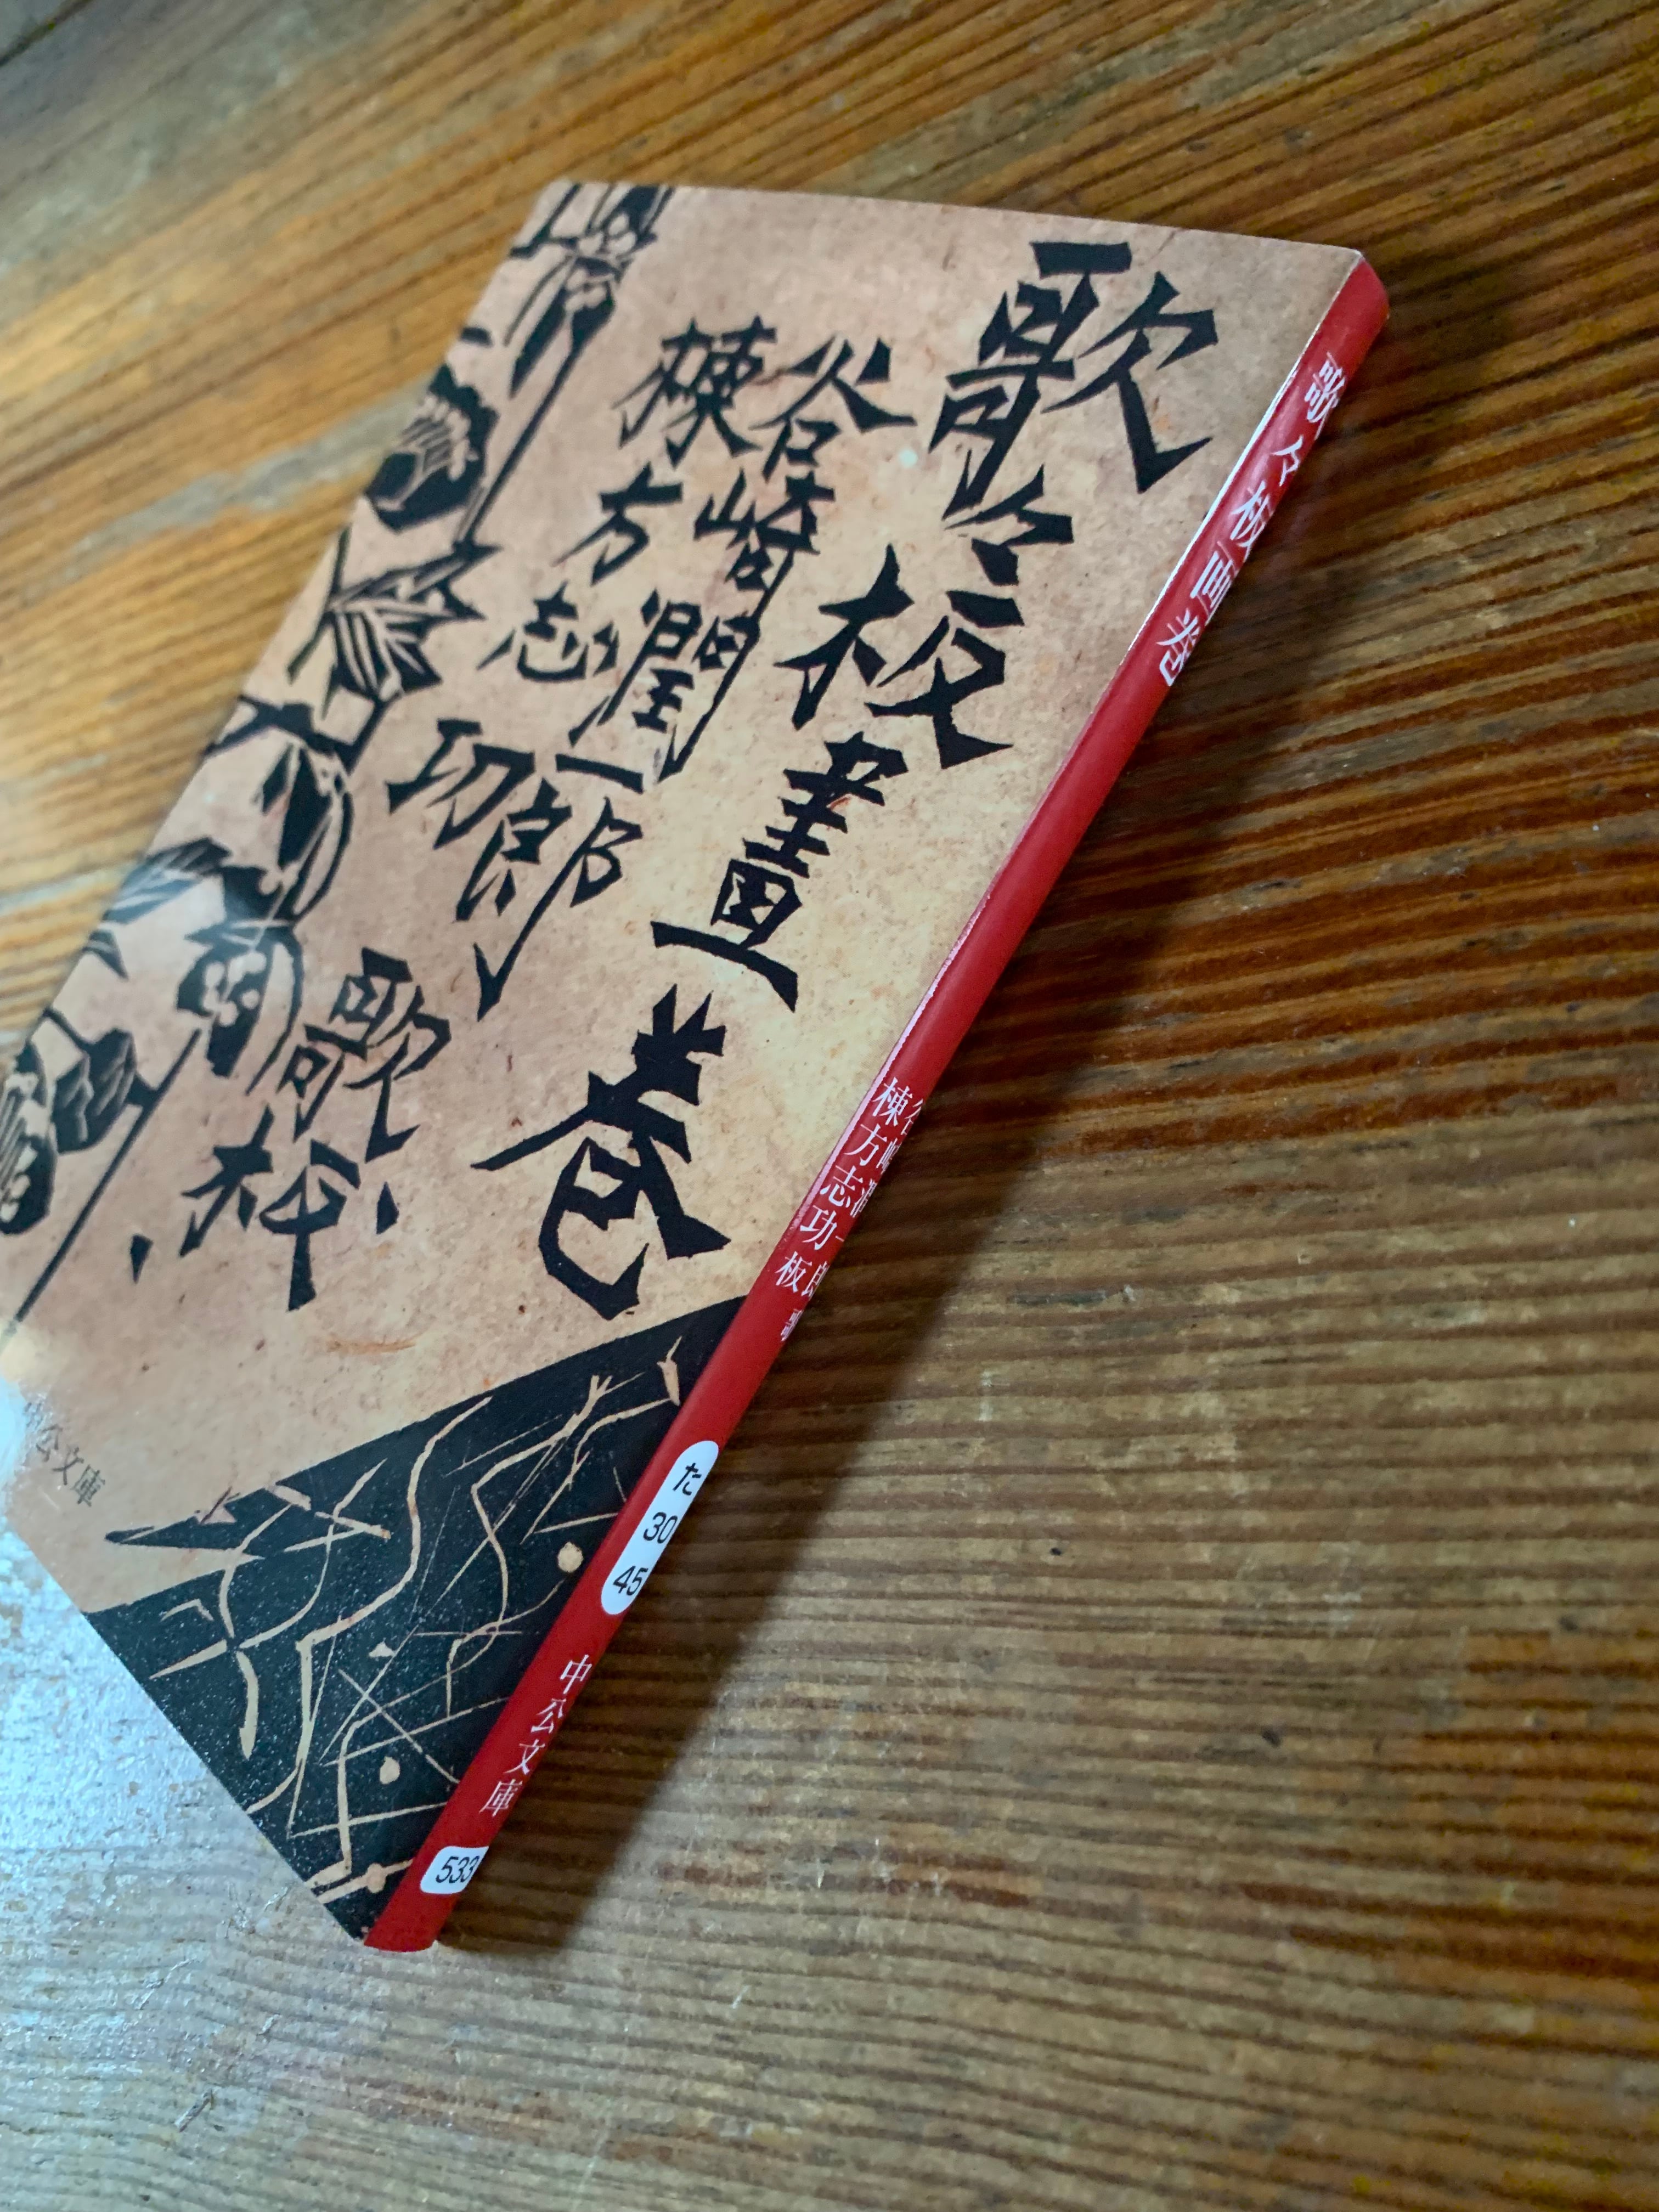 歌々板畫巻
谷崎潤一郎歌
棟方志功板
中公文庫
歌々板画巻
谷崎潤一郎 歌
棟方志功 板
た
30
45
中公文庫
533